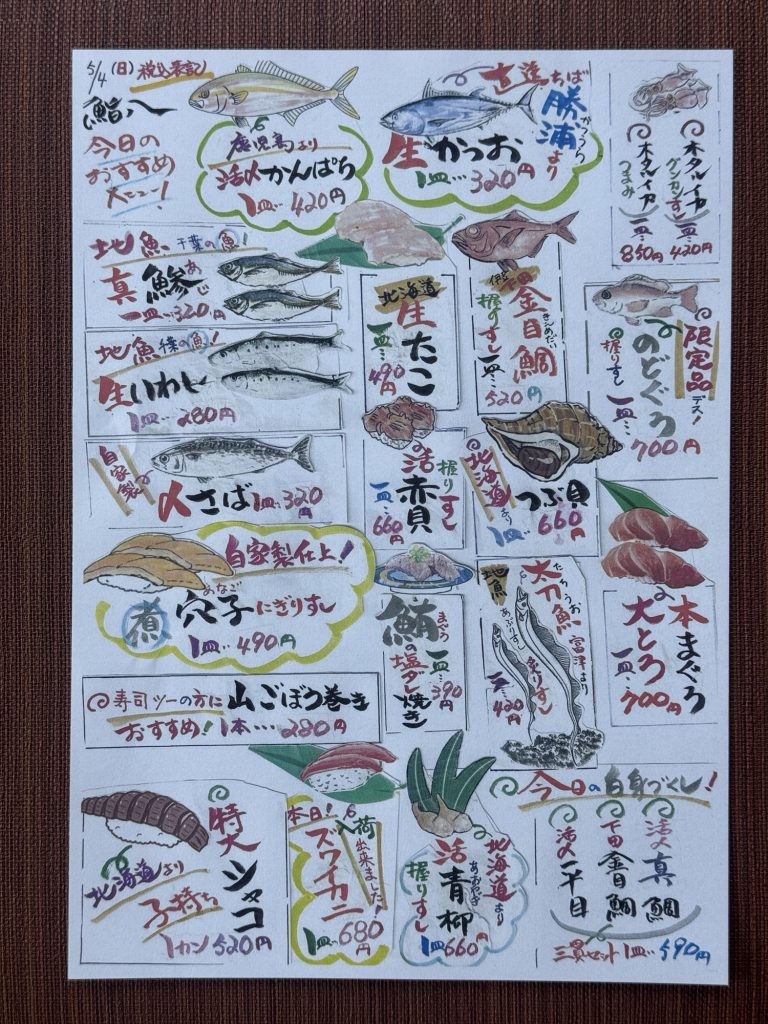 5/4(日)税込表記
鮨八
今日の
おすすめ
メニュー!
鹿児島より
活〆かんぱち
1皿…420円
古逹ちば
勝浦より
かつうら
生かつお
1皿…320円
ホタルイカ グンカンすし 一皿…420円
ホタルイカ つまみ 一皿…850円
地魚 千葉の魚!
真鯵
あじ
一皿…320円
地魚 千葉の魚!
生いわし
1皿…280円
自家製
〆さば 1皿…320円
北海道
生たこ
一皿…490円
伊豆下田
金目鯛
きんめだい
握りすし 一皿…520円
限定品デス!
のどぐろ
握りすし 一皿…700円
活赤貝
握りすし
一皿…660円
北海道より
つぶ貝
1皿…660円
自家製仕上!
あなご
煮 穴子にぎりすし
1皿…490円
寿司ツーの方に
おすすめ!
山ごぼう巻き
1本…280円
まぐろ
鮪の塩ダレ焼き
一皿…390円
地魚
太刀魚
たちうお
富津より
あぶりすし
炙りすし
一皿…420円
本まぐろ
大とろ
一皿…700円
特大シャコ
北海道より
子持ち
1カン520円
本日!
入荷出来ました!
ズワイカニ
1皿…680円
北海道より
あおやぎ
活青柳
握りすし
1皿660円
今日の白身づくし!
活〆真鯛
下田金目鯛
活〆平目
三貫セット1皿…590円